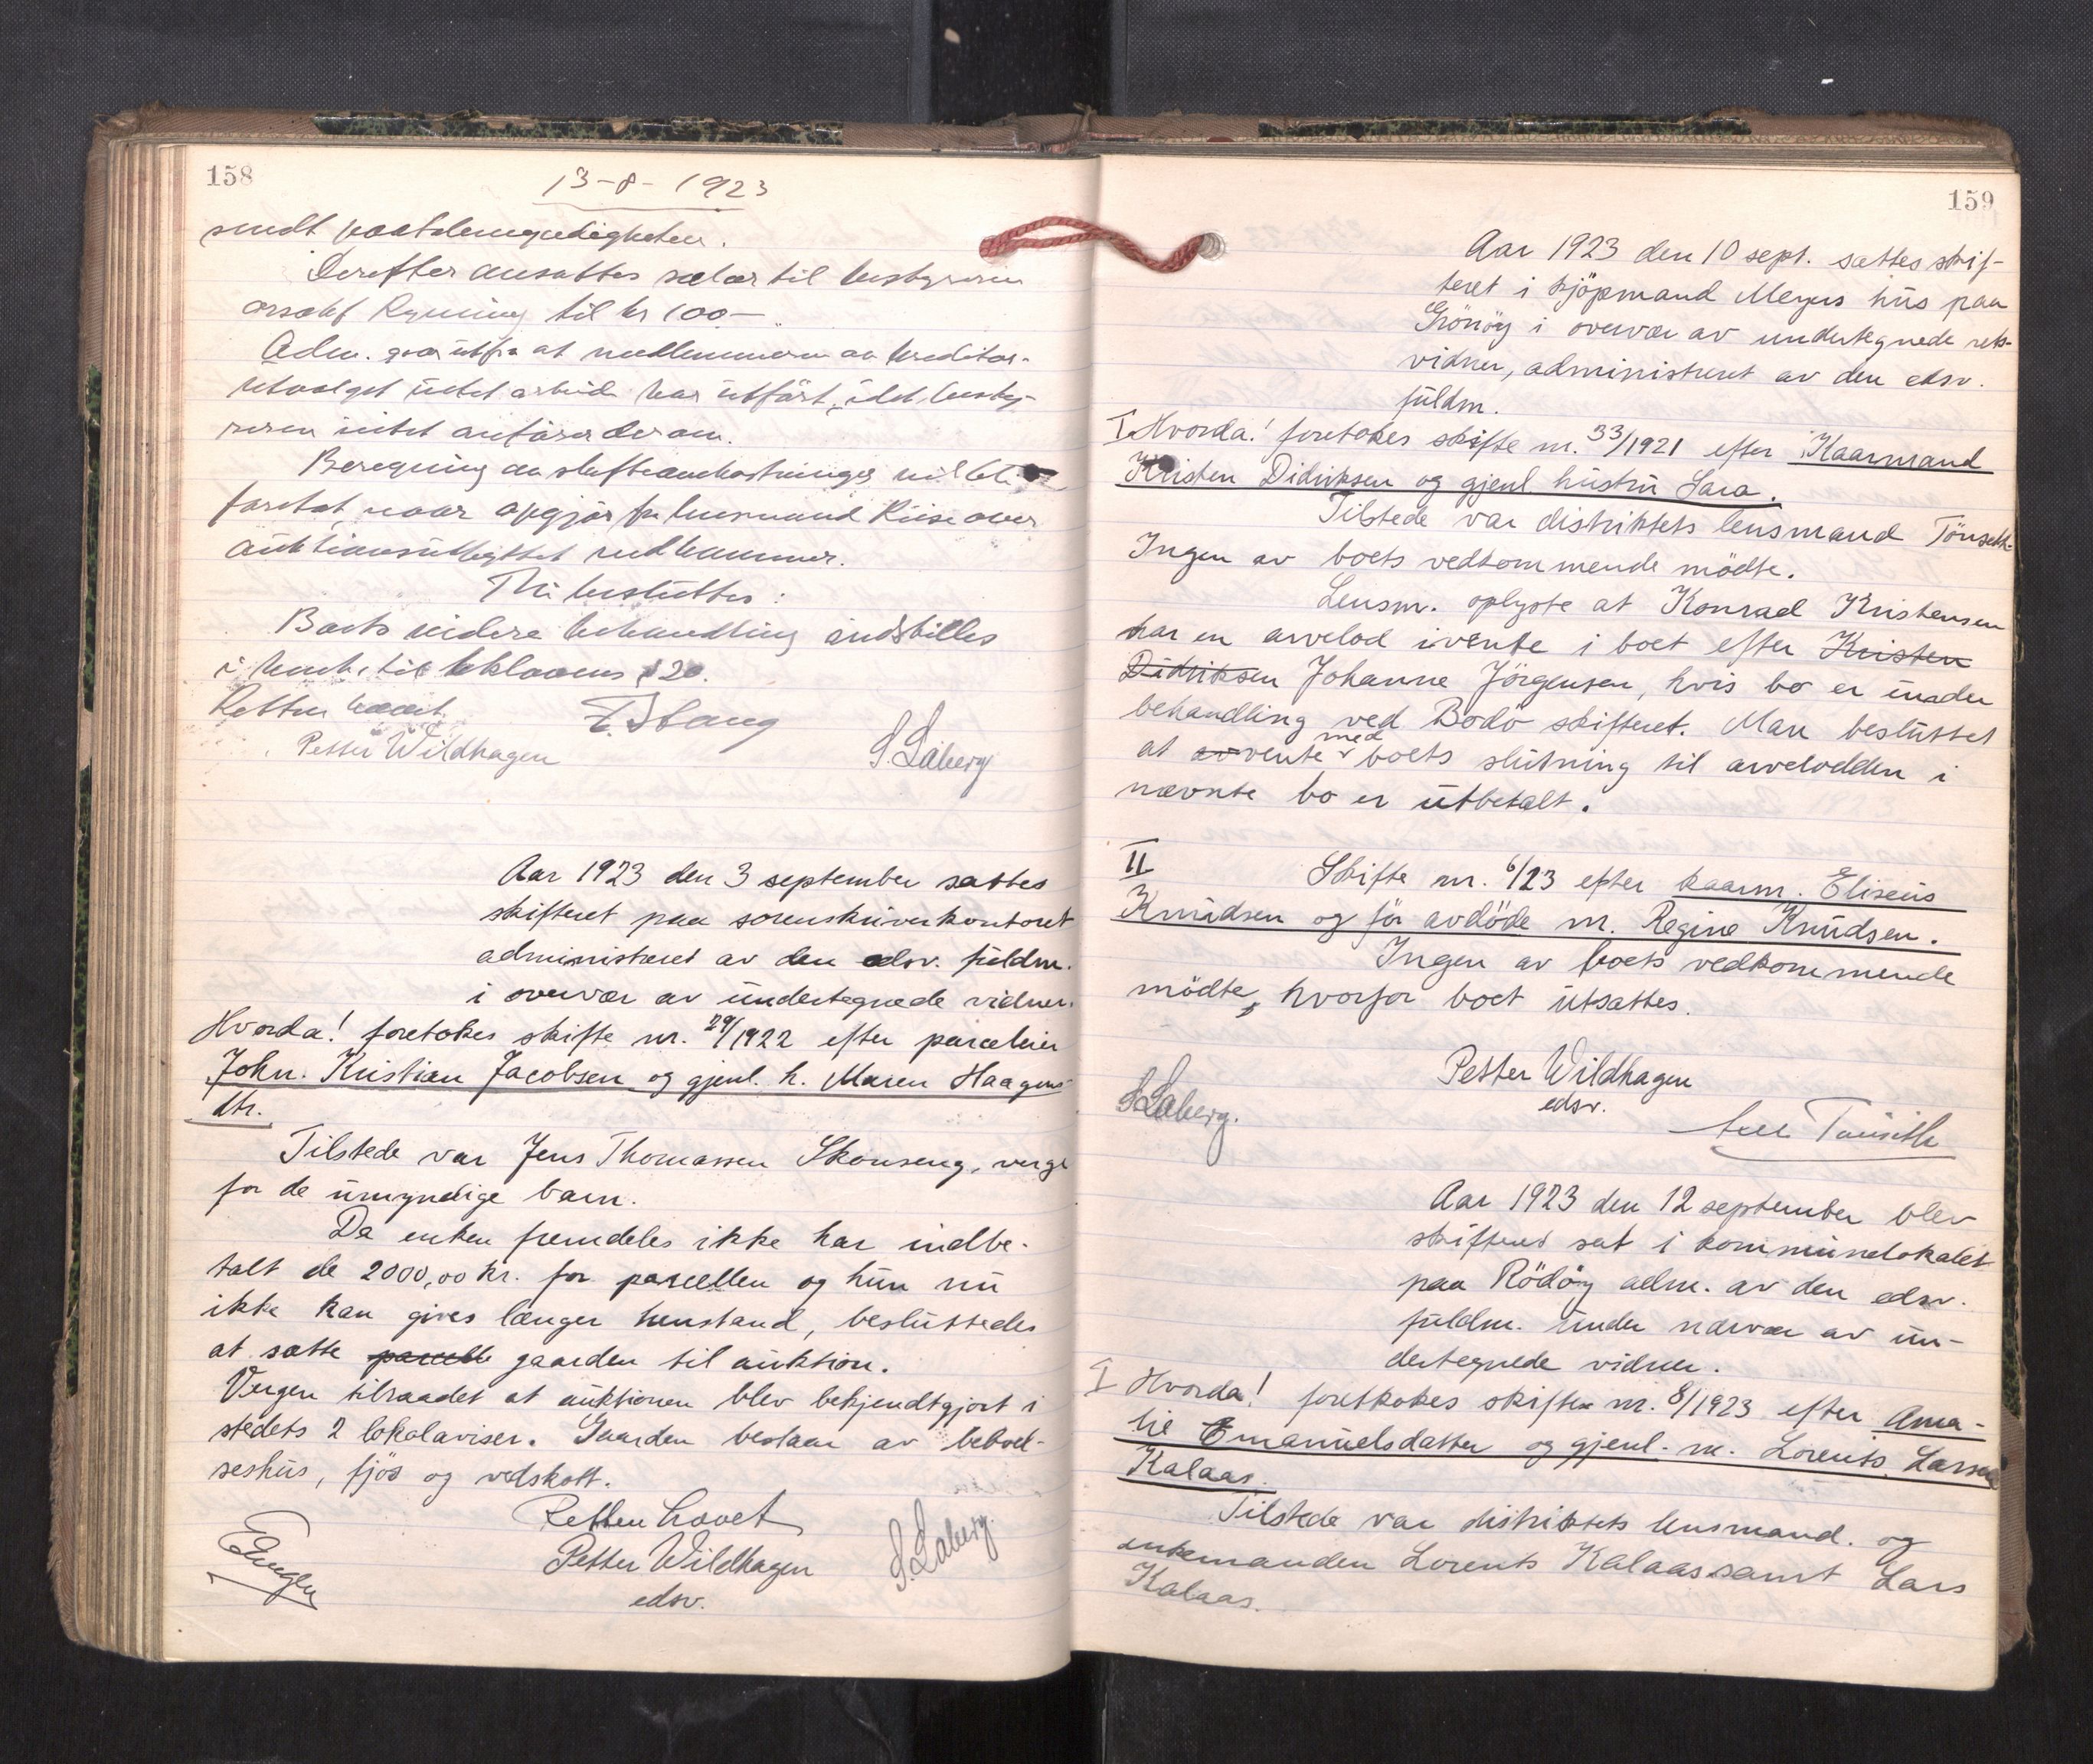 158
13-8-1923
sendt paatalemyndigheten.
Derefter ansattes salær til bestyreren
ansatt Regning til kr 100—
Adm. gaar ut fra at medlemmerne av kreditor-
utvalget intet arbeide har utført, idet besty-
reren intet anfører derom.
Beregning av skifteomkostninger vil bli
foretat, naar opgjør fra lensmand Riise over
auktionsutbyttet indkommer.
Thi besluttes:
Boets videre behandling indstilles
i henh. til lovens § 20.
Retten hævet
Petter Wildhagen
S. Laberg
Aar 1923 den 3 september sattes
skifteret paa sorenskriverkontoret
administreret av den edsv. fuldm.
i overvær av undertegnede vidner.
Hvorda! foretokes skifte nr. 29/1922 efter parceleier
John. Kristian Jacobsen og gjenl. h. Maren Haagens-
dtr.
Tilstede var Jens Thomassen Skonseng, verge
for de umyndige barn.
Da enken fremdeles ikke har indbe-
talt de 2000,00 kr. for parcellen og hun nu
ikke kan gives længer henstand, besluttedes
at sætte parcelle gaarden til auktion.
Vergen tilraadet at auktionen blev bekjendtgjort i
stedets 2 lokalaviser. Gaarden bestaar av beboel-
seshus, fjøs og vedskott.
Retten hævet
Petter Wildhagen
edsv.
S. Laberg
159
Aar 1923 den 10 sept. sattes skif-
teret i kjöpmand Meyers hus paa
Grönöy i overvær av undertegnede rets-
vidner, administreret av den edsv.
fuldm.
I. Hvorda! foretokes skifte nr. 33/1921 efter Kaarmand
Kristen Didriksen og gjenl. hustru Sara.
Tilstede var distriktets lensmand Tönseth.
Ingen av boets vedkommende mödte.
Lensm. oplyste at Konrad Kristensen
har en arvelod ivente i boet efter Kristen
Didriksen Johanne Jörgensen, hvis bo er under
behandling ved Bodö skifteret. Man besluttet
at avvente med boets slutning til arvelodden i
nævnte bo er utbetalt.
II
Skifte nr. 6/23 efter kaarm. Eliseus
Knudsen og för avdöde m. Regine Knudsen.
Ingen av boets vedkommende
mödte, hvorfor boet utsattes.
Petter Wildhagen
edsv.
S. Laberg.
Tönseth
Aar 1923 den 12 september blev
skifteret sat i kommunelokalet
paa Rödöy adm. av den edsv.
fuldm. under nærvær av un-
dertegnede vidner.
I Hvorda! foretokes skifte nr. 8/1923 efter Ama-
lie Emanuelsdatter og gjenl. m. Lorents Larsen
Kalaas.
Tilstede var distriktets lensmand. og
enkemanden Lorents Kalaas samt Lars
Kalaas.